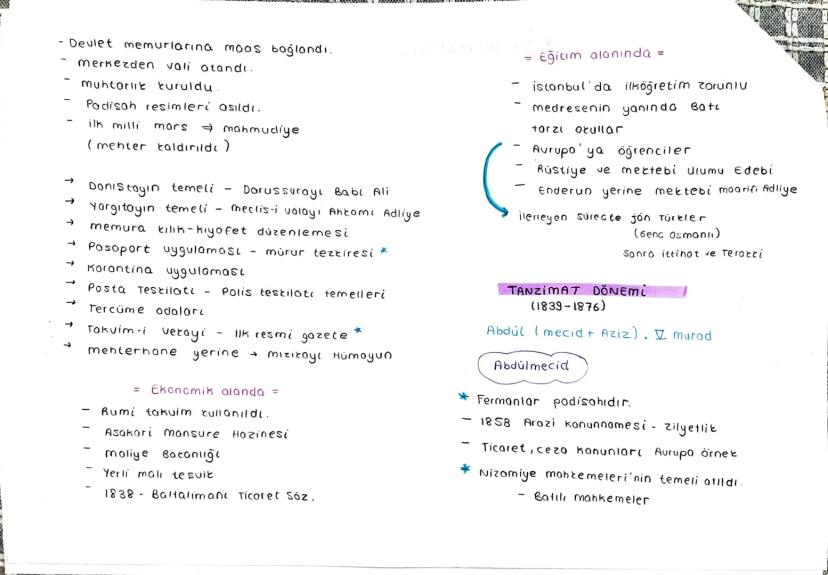 - Devlet memurlarına maaş bağlandı.
- merkezden vali atandı.
- muhtarlık kuruldu.
- Padişah resimleri asıldı.
- ilk milli marş ⇒ mahmudiye
(mehter kaldırıldı)
→ Danıştayın temeli - Darussurayı Babı Ali
→ Yargıtayın temeli - meclis-i valayı Ahkamı Adliye
→ memura kılık-kıyafet düzenlemesi
→ Pasaport uygulaması - mürur tezkiresi *
→ Karantina uygulaması
→ Posta Teşkilatı - Polis teşkilatı temelleri
→ Tercüme odaları
→ Takvim-i vekayi - ilk resmi gazete *
→ mehterhane yerine → mızıkayı Hümayun
= Ekonomik alanda =
- Rumi takvim kullanıldı.
- Asakari Mansure Hazinesi
- maliye Bakanlığı
- Yerli malı teşvik
- 1838 - Baltalimanı Ticaret Söz.
= Eğitim alanında =
- istanbul'da ilköğretim zorunlu
- medresenin yanında Batı
tarzı okullar
- Avrupa'ya öğrenciler
- Rüştiye ve mektebi ulumu Edebi
- Enderun yerine mektebi maarifi Adliye
ilerleyen süreçte jön Türkler
(Genc Osmanlı)
sonra ittihat ve Terakki
TANZİMAT DÖNEMİ
(1839-1876)
Abdül (mecid + Aziz). V. murad
Abdülmecid
* Fermanlar padişahıdır.
- 1858 Arazi kanunnamesi - zilyetlik
- Ticaret, ceza kanunları Avrupa örnek
* Nizamiye mahkemeleri'nin temeli atıldı.
- Batılı mahkemeler